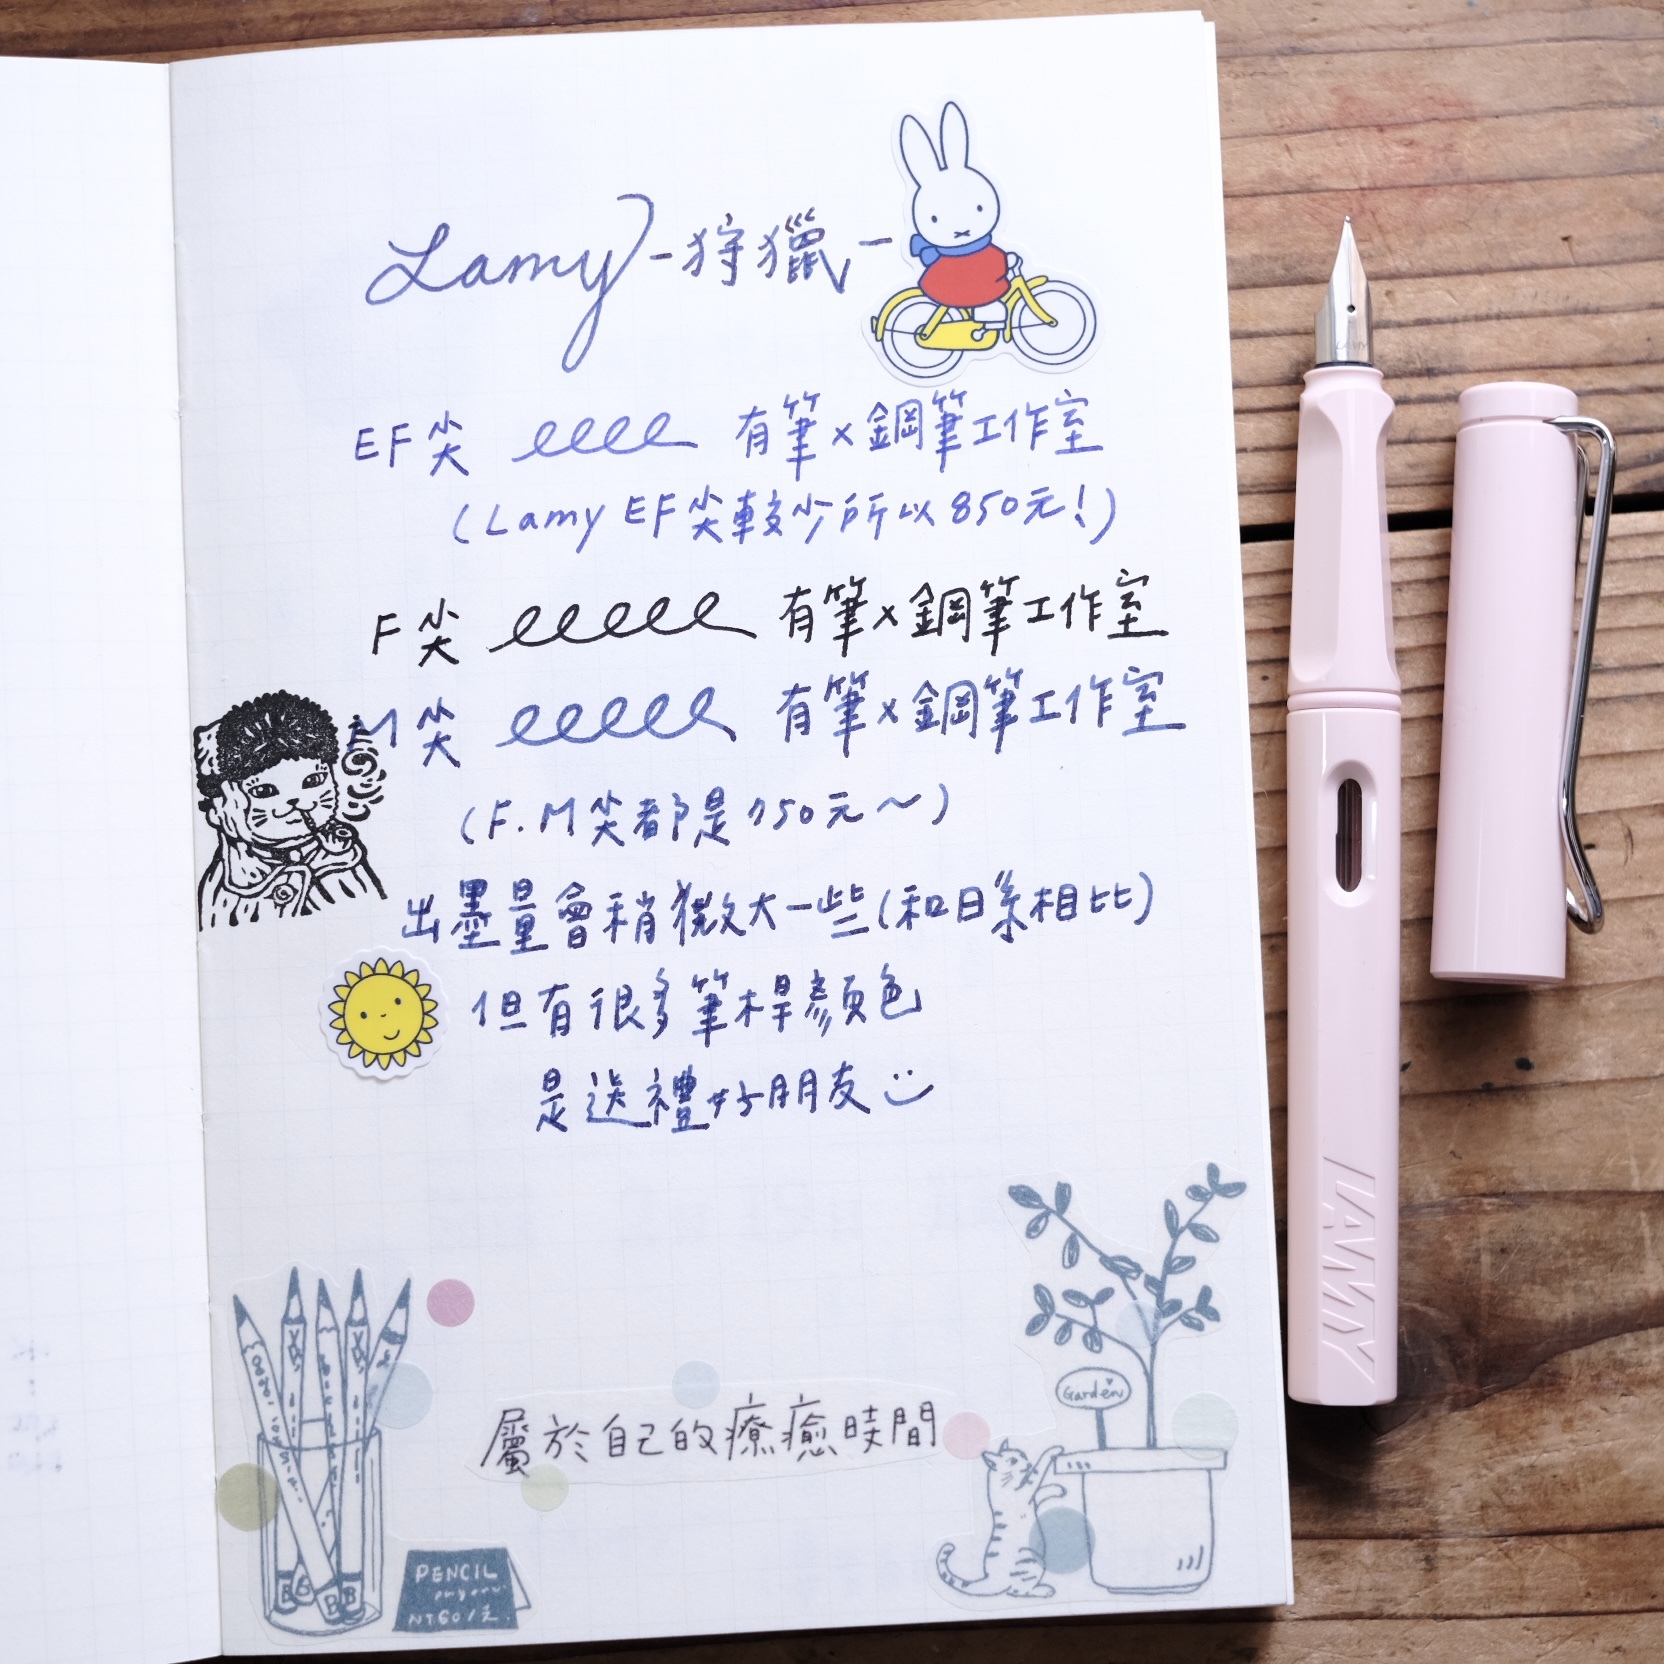 Lamy -狩獵-
EF尖 有筆×鋼筆工作室
(Lamy EF尖較少所以850元!)
F尖 有筆×鋼筆工作室
M尖 有筆×鋼筆工作室
(F.M尖都是750元~)
出墨量會稍微大一些(和日系相比)
但有很多筆桿顏色
是送禮好朋友
屬於自己的療癒時間
Garden
PENCIL
NT60/支.
B B B B
LAMY
LAMY